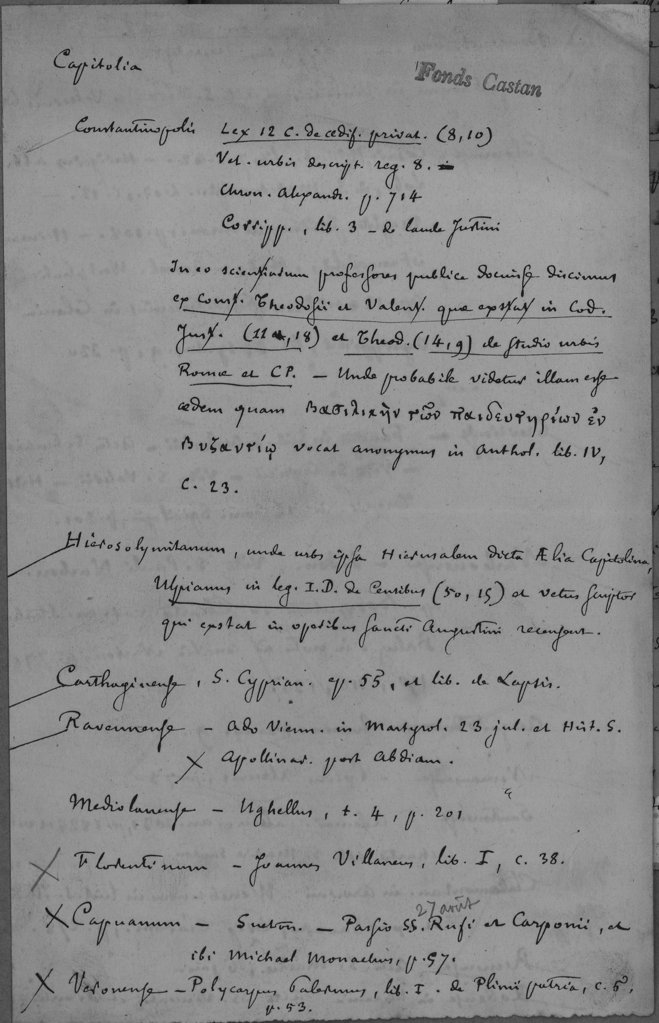 Capitolia
Fonds Castan
Constantinopolis Lex 12 C. de ædif. privat. (8,10)
Vet. urbis descript. reg. 8. —
Chron. Alexandr. p. 714
Coripp., lib. 3 – de laude Justini
In eo scientiarum professores publice docuisse discimus
ex Const. Theodosii et Valent. quæ exstat in Cod.
Just. (11, 18) et Theod. (14, 9) de studio urbis
Romæ et CP. – Unde probabile videtur illam esse
ædem quam Βασιλικὴν τῶν παιδευτηρίων ἐν
Βυζαντίῳ vocat anonymus in Anthol. lib. IV,
C. 23.
Hierosolymitanum, unde urbs ipsa Hierusalem dicta Ælia Capitolina,
Ulpianus in leg. I. D. de Censibus (50, 15) et vetus scriptor
qui exstat in operibus sancti Augustini
Carthaginense, S. Cyprian. ep. 55, et lib. de Lapsis.
Ravennense – Ado Vienn. in Martyrol. 23 jul. et Hist. S.
X Apollinar. post Abdiam.
Mediolanense – Ughellus, t. 4, p. 201
X Florentinum – Joannes Villaneus, lib. I, c. 38.
27 août
X Capuanum – Sueton. – Passio SS. Rufi et Carponii, et
ibi Michael Monachus, p. 97.
X Veronense – Polycarpus Palermus, lib. I. de Plinii patria, c. 5.
p. 53.